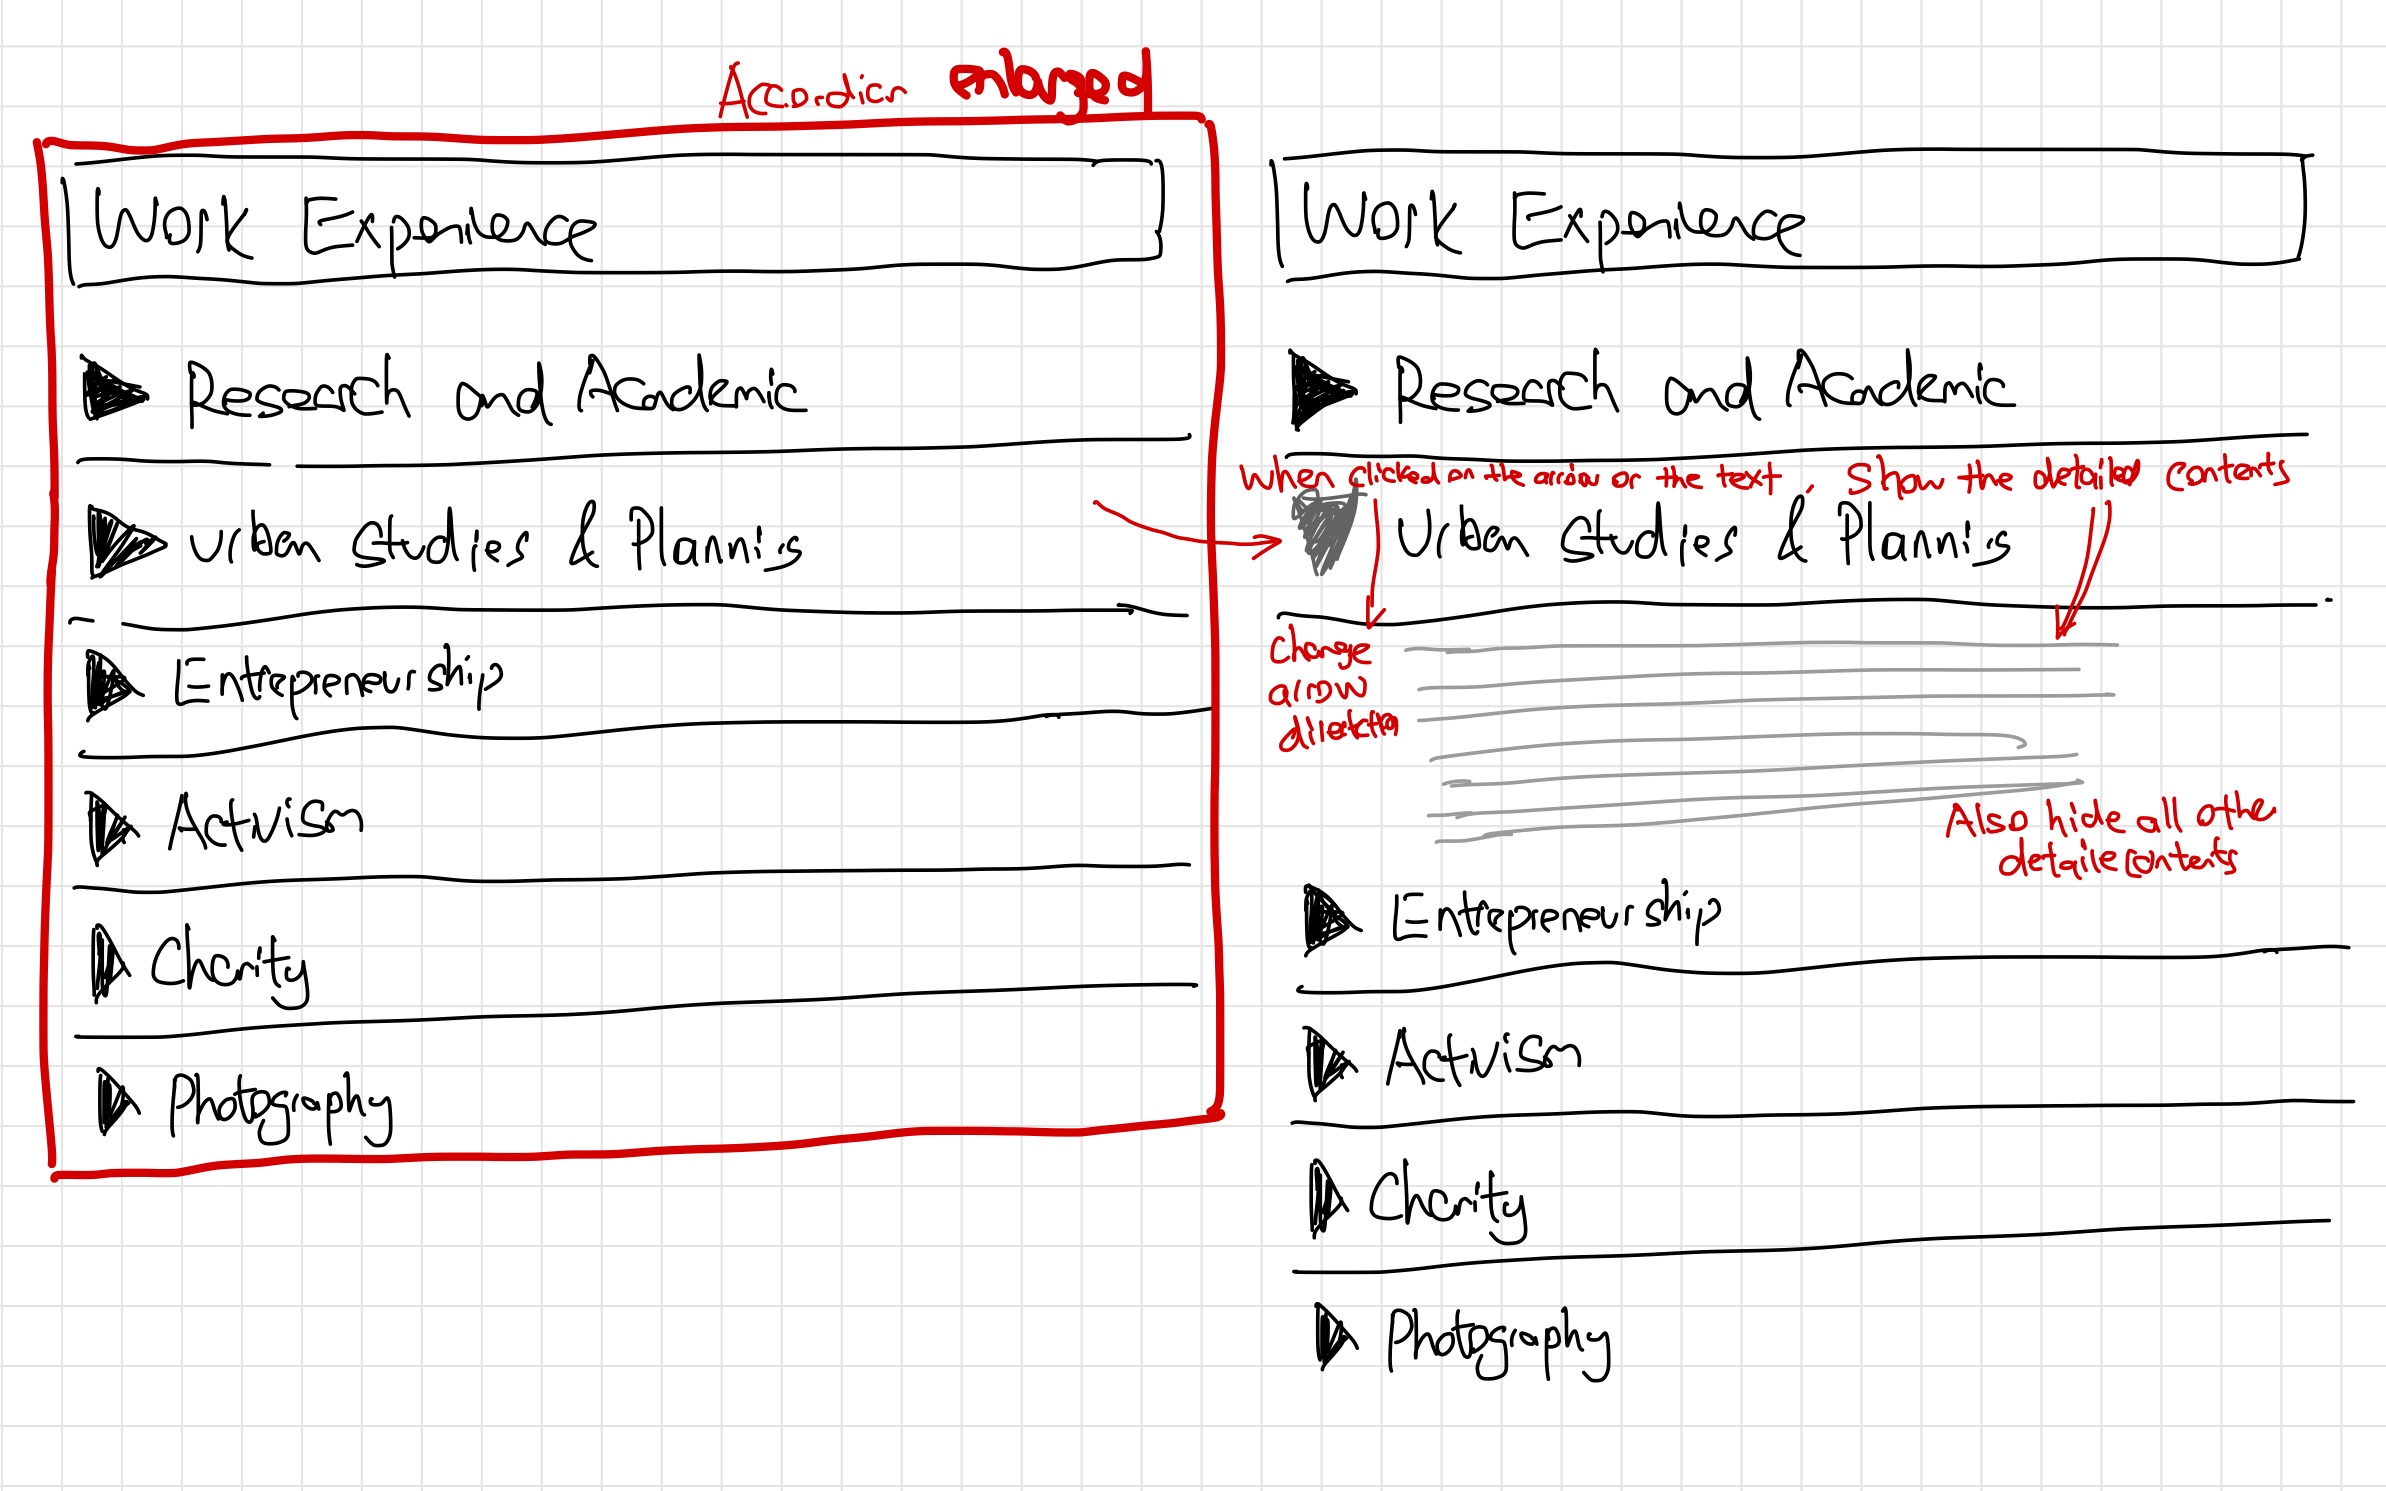 Accordion enlarged
Work Experience
Research and Academic
Urban Studies & Planning
Entrepreneurship
Activism
Charity
Photography
Work Experience
Research and Academic
When clicked on the arrow or the text, show the detailed contents
Urban Studies & Planning
Change
arrow
direction
Also hide all othe
detaile contents
Entrepreneurship
Activism
Charity
Photography